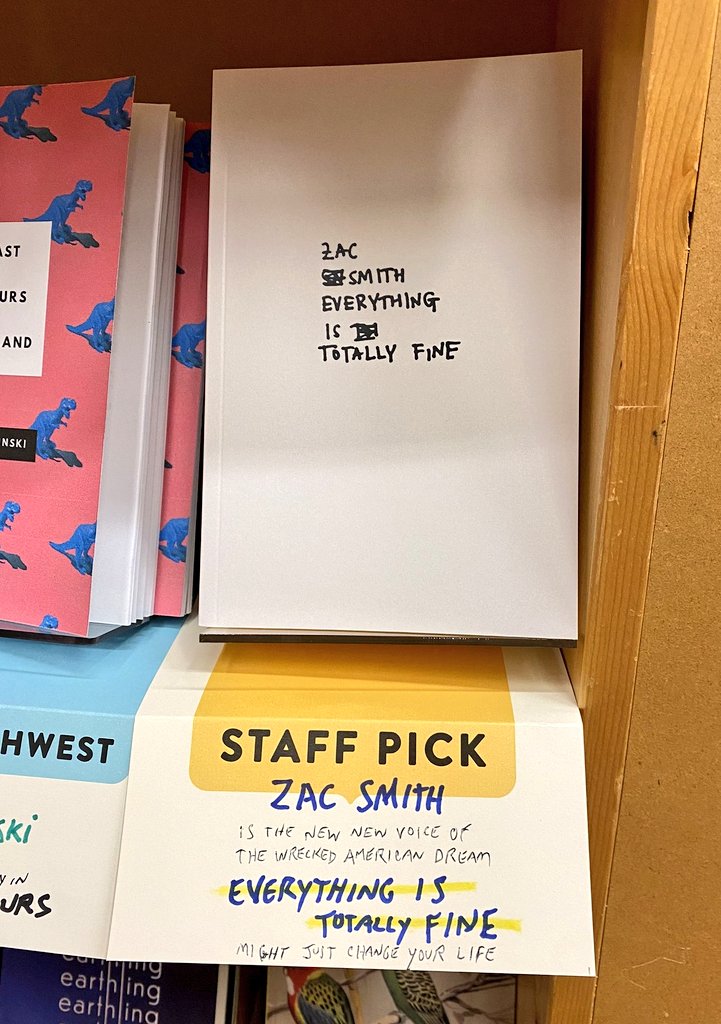 AST
URS
AND
NSKI
ZAC
SMITH
EVERYTHING
IS
TOTALLY FINE
HWEST
SKI
y IN
URS
STAFF PICK
ZAC SMITH
IS THE NEW NEW VOICE OF
THE WRECKED AMERICAN DREAM
EVERYTHING IS
TOTALLY FINE
MIGHT JUST CHANGE YOUR LIFE
earthling
earthling
earthling